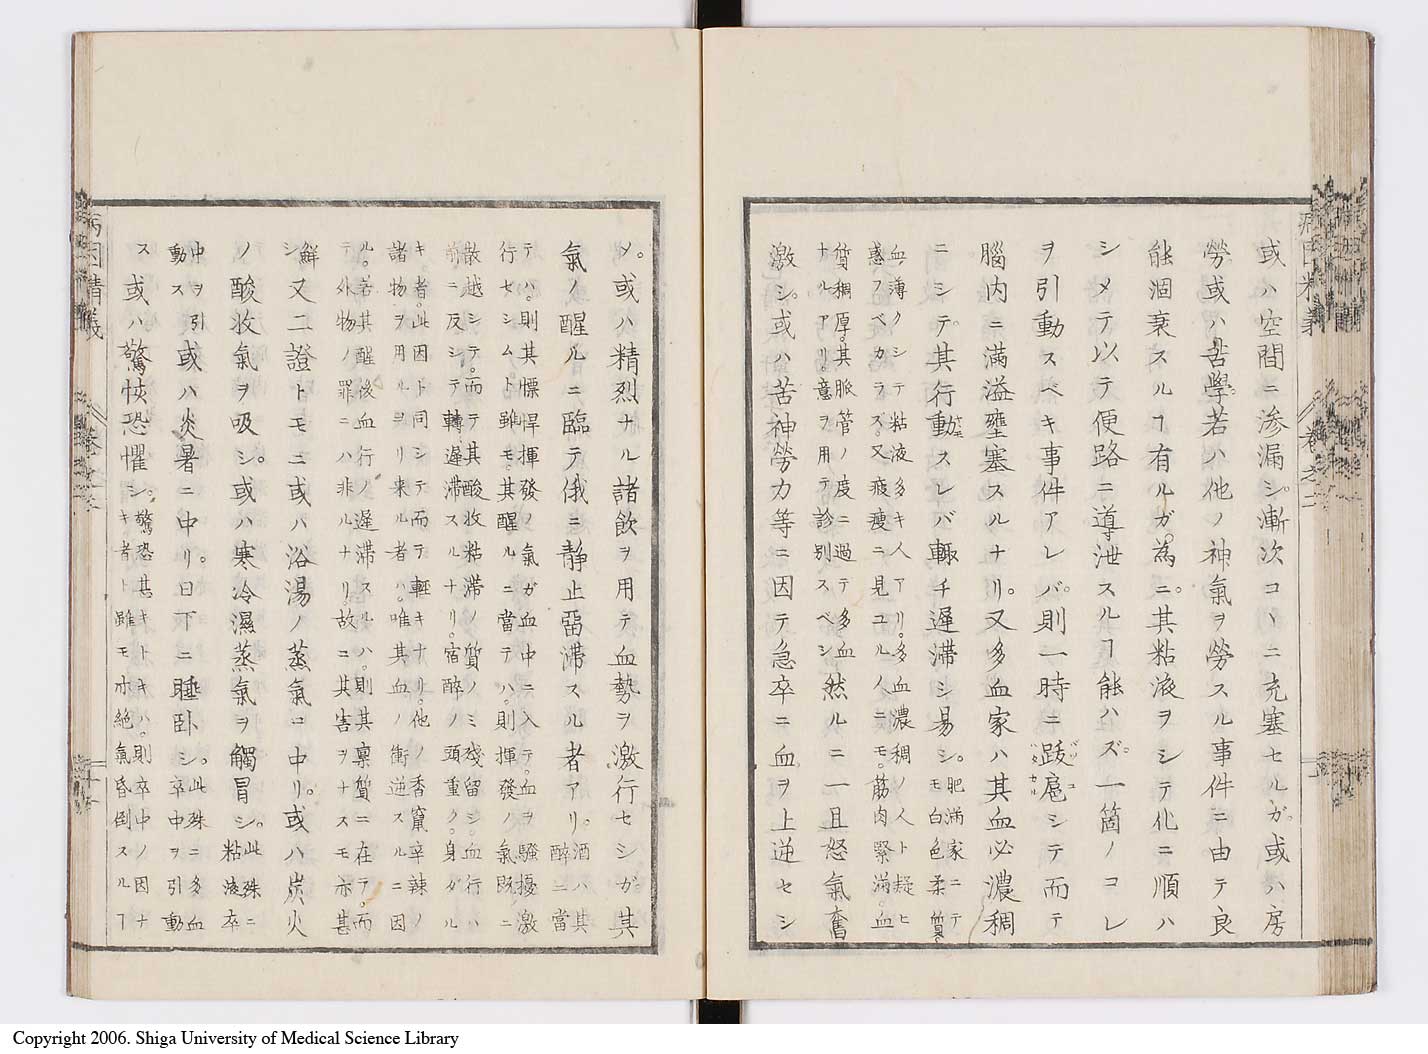 病因精義 卷之二
或ハ空間ニ滲漏シ。漸次コヽニ充塞セルガ。或ハ房
勞或ハ苦學若ハ他ノ神氣ヲ勞スル事件ニ由テ良
能涸衰スルヿ有ルガ。為ニ。其粘液ヲシテ化ニ順ハ
シメテ以テ便路ニ導泄スルヿ能ハズ。一箇ノコレ
ヲ引動スベキ事件アレバ。則一時ニ跋扈シテ而テ
腦内ニ滿溢壅塞スルナリ。又多血家ハ其血必濃稠
ニシテ。其行動スレバ輙チ遲滯シ易シ。肥滿家ニテモ白色柔質
血薄クシテ粘液多キ人アリ。多血濃稠ノ人ト疑ヒ
惑フベカラス。又疲瘦ニ見ユル人ニモ。筋肉緊滿。血
質稠厚。其脈管ノ度ニ過テ多血
ナルアリ。意ヲ用テ診別スベシ然ルニ一旦怒氣奮
激シ。或ハ苦神勞力等ニ因テ急卒ニ血ヲ上逆セシ
メ。或ハ精烈ナル諸飲ヲ用テ血勢ヲ激行セシガ。其
氣ノ醒ルニ臨テ俄ニ靜止畱滯スル者アリ。酒ハ其醉ニ當
テハ。則其慓悍揮發ノ氣ガ血中ニ入テ。血ヲ騷擾激
行セシム。ト雖モ。其醒ルニ當テハ。則揮發ノ氣既ニ
散越シテ。而テ其酸收粘滯ノ質ノミ殘留シ。血行ハ
前ニ反シテ轉遲滯スルナリ。宿醉ノ頭重ク。身ダル
キ者。此因ト同シテ而テ輕キナリ。他ノ香竄辛辣ノ
諸物ヲ用ルヨリ来ル者ハ。唯其血ノ衝逆スルニ因
ル。若其醒後血行ノ遲滯スルハ。則其稟質ニ在テ。而
テ外物ノ罪ニハ非ルナリ。故ニ其害ヲナスモ亦甚
鮮シ又二證トモニ或ハ浴湯ノ蒸氣ニ中リ。或ハ炭火
ノ酸收氣ヲ吸シ。或ハ寒冷濕蒸氣ヲ觸冒シ。此殊ニ粘液卒
中ヲ引動ス或ハ炎暑ニ中リ。日下ニ睡卧シ。此殊ニ多血卒中ヲ引動
ス或ハ驚怏恐懼シ。驚恐甚キトキハ。則卒中ノ因ナ
キ者ト雖モ亦絕氣昏倒スルヿ
病因精義 卷之二 十一